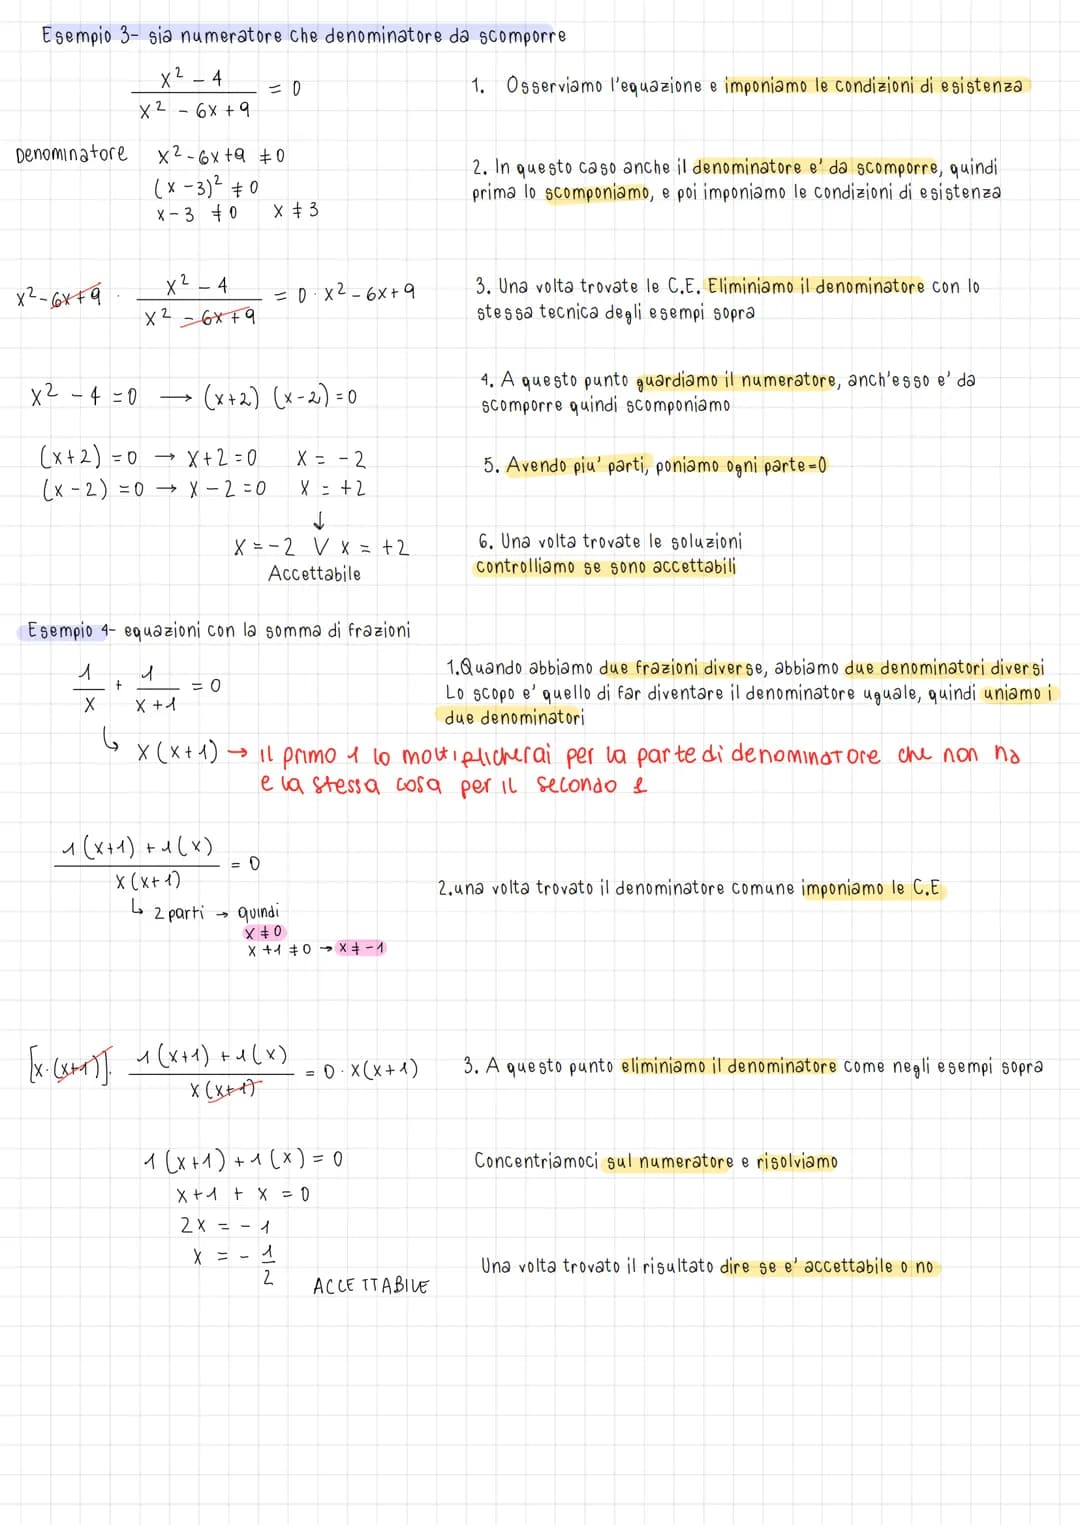 Esempio 3- sia numeratore che denominatore da scomporre
x² - 4 / x² - 6x + 9 = 0
1. Osserviamo l'equazione e imponiamo le condizioni di esistenza
Denominatore x² - 6x + 9 ≠ 0
(x - 3)² ≠ 0
x - 3 ≠ 0 x ≠ 3
2. In questo caso anche il denominatore e' da scomporre, quindi
prima lo scomponiamo, e poi imponiamo le condizioni di esistenza
x² - 6x + 9 · x² - 4 / x² - 6x + 9 = 0 · x² - 6x + 9
3. Una volta trovate le C.E. Eliminiamo il denominatore con lo
stessa tecnica degli esempi sopra
x² - 4 = 0 → (x+2) (x-2) = 0
4. A questo punto guardiamo il numeratore, anch'esso e' da
scomporre quindi scomponiamo
(x+2) = 0 → x+2 = 0 x = -2
(x-2) = 0 → x-2 = 0 x = +2
5. Avendo piu' parti, poniamo ogni parte=0
↓
x = -2 V x = +2
Accettabile
6. Una volta trovate le soluzioni
controlliamo se sono accettabili
Esempio 4- equazioni con la somma di frazioni
1/x + 1/x+1 = 0
1.Quando abbiamo due frazioni diverse, abbiamo due denominatori diversi
Lo scopo e' quello di far diventare il denominatore uguale, quindi uniamo i
due denominatori
↳ x(x+1) → il primo 1 lo moltiplicherai per la parte di denominatore che non ha
e la stessa cosa per il secondo 1
1(x+1) + 1(x) / x(x+1) = 0
2.una volta trovato il denominatore comune imponiamo le C.E
↳ 2 parti → quindi
x ≠ 0
x+1 ≠ 0 → x ≠ -1
[x·(x+1)]· 1(x+1) + 1(x) / x(x+1) = 0 · x(x+1)
3. A questo punto eliminiamo il denominatore come negli esempi sopra
1(x+1) + 1(x) = 0
Concentriamoci sul numeratore e risolviamo
x+1 + x = 0
2x = -1
x = - 1/2
ACCETTABILE
Una volta trovato il risultato dire se e' accettabile o no